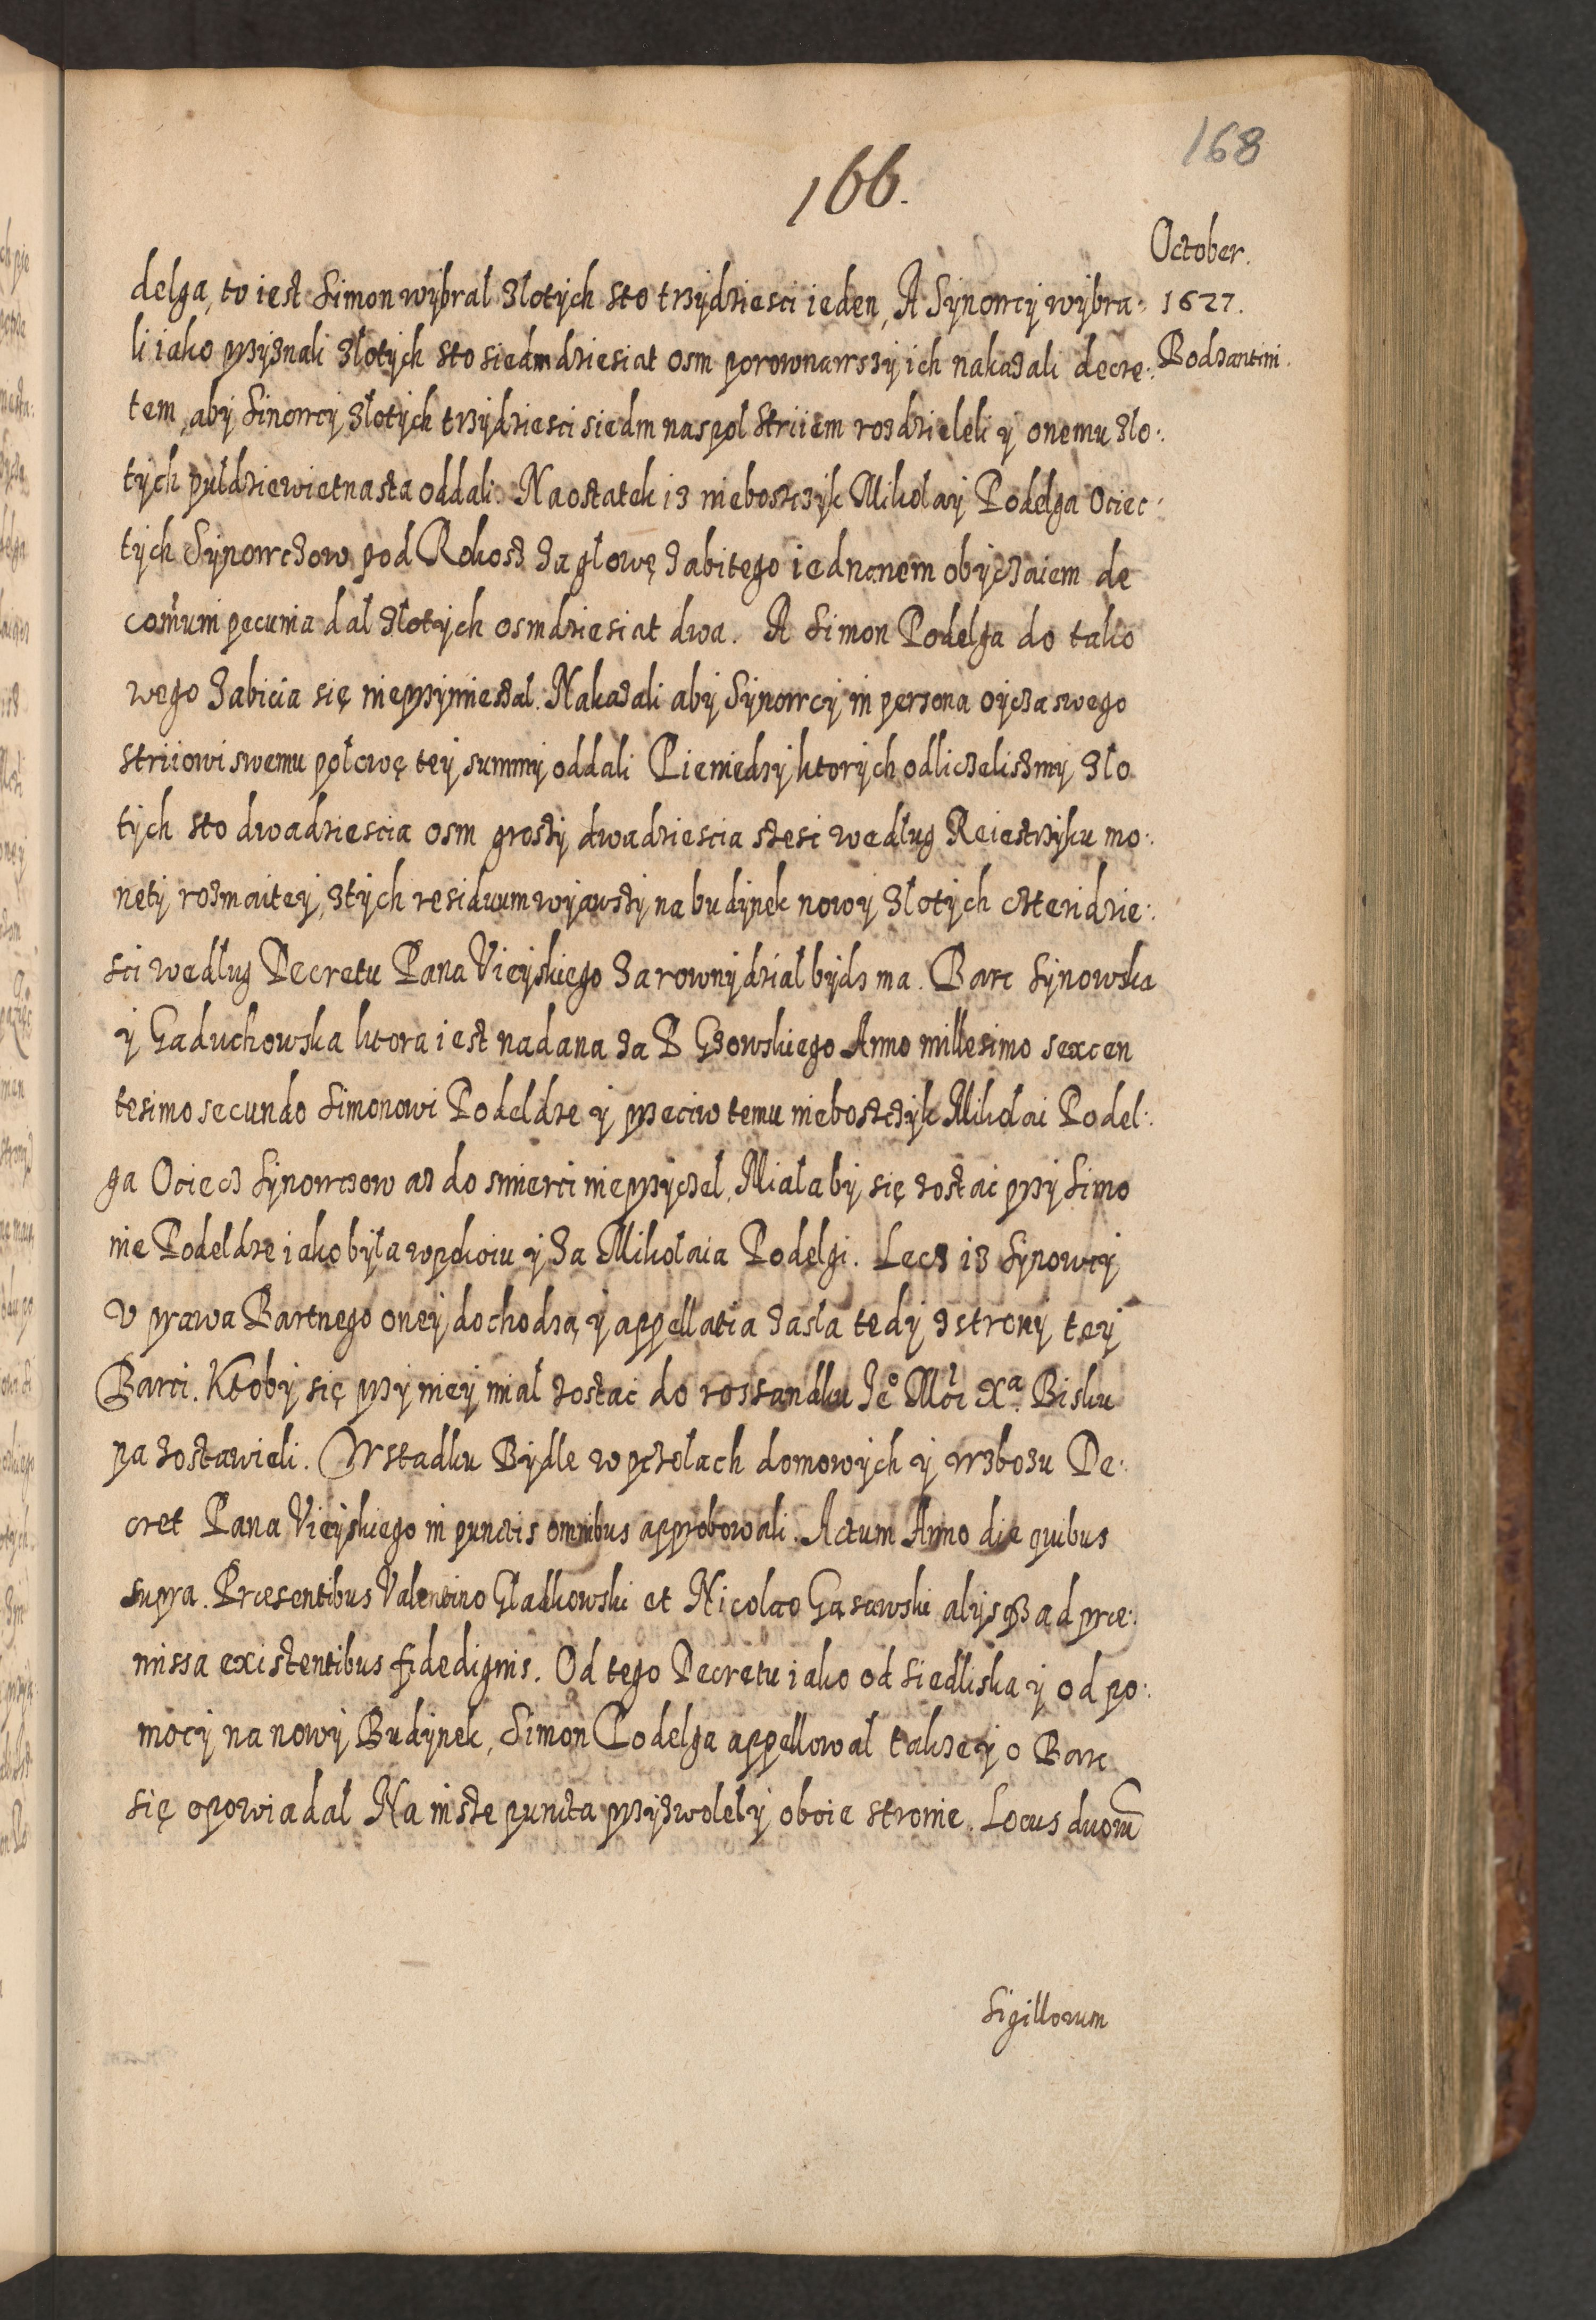 168
166.
October.
1627.
Bodzantini.
delga, to iest Simon wybral złotych sto trzydziesci ieden, A Synowcy wybra:
li iako przyznali złotych sto siedmdziesiat osm porownawszy ich nakazali decre:
tem, aby Sinowcy złotych trzydziesci siedm naspol Striiem rozdzieleli y onemu zło:
tych puldziewietnasta oddali. Naostatek iz nieboszczyk Mikołay Podelga Ociec
tych Synowczow pod Rokosz za głowę zabitego iednanem obyczaiem de
com̃uni pecunia dał złotych osmdziesiat dwa. A Simon Podelga do tako
wego zabicia się nieprzymieszał. Nakazali aby Synowcy in persona oycza swego
striiowi swemu połowę tey summy oddali Pieniedzy ktorych odliczelismy zło
tych sto dwadziescia osm groszy dwadziescia szesc według Reiestrzyku mo:
nety rozmaitey, ztych residuum wyiawszy na budynek nowy złotych czteridzie:
sci według Decretu Pana Vieyskiego za rowny dział bydz ma. Barc Synowska
y Gaduchowska ktora iest nadana za P Gzowskiego Anno millesimo sexcen
tesimo secundo Simonowi Podeldze y przeciw temu nieboszczyk Mikołai Podel:
ga Ociecz Synowczow az do smierci nieprzyczel, Miałaby się zostac przy Simo
nie Podeldze iako była wpokoiu y za Mikołaia Podelgi. Lecz iz Synowcy
V prawa Bartnego oney dochodza, y appellatia zasla tedy zstrony tey
Barci. Ktoby się przy niey miał zostac do rossandku Jeͦ Mći Xᵃ. Bisku
pa zostawieli. Wstadku Bydle wpczołach domowych y wzbozu De:
cret Pana Vieyskiego in punctis omnibus approbowali. Actum Anno die quibus
supra. Præsentibus Valentino Gladkowski et Nicolao Gasawski alysqз ad præ:
missa existentibus fidedignis. Od tego Decretu iako od Siedliska y od po:
mocy na nowy Budynek, Simon Podelga appellowal takze y o Barc
się opowiadał Na insze puncta przyzwolely oboie stronie. Locus duorũ
Sigillorum